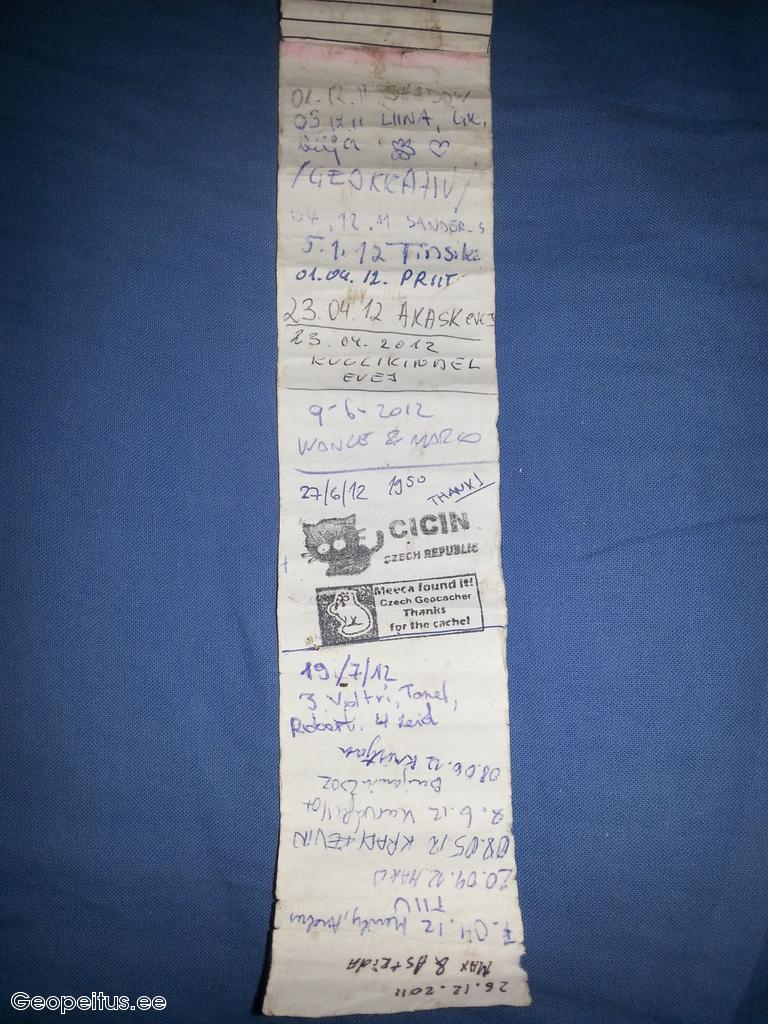 01.12.11 SHADOW
03.12.11 LIINA, GK,
/GEOKRATIV/
04.12.11 SANDER_S
5.1.12 Tinsik
01.04.12. PRIIT
23.04.12 AKASK EVEJ
23.04.2012
KUULIKINDEL
EVEJ
9-6-2012
WONCE & MARCO
27/6/12 1950 THANK!
CICIN
CZECH REPUBLIC
Meeca found it!
Czech Geocacher
Thanks
for the cache!
19/7/12
3. Veltri, Tanel,
Robert. 4 leid
08.06.12 Kristjan
Benjamin002
2.6.12
08.05.12 KRANTEVIN
20.04.12 MARKO
TIIU
7.04.12
MAX & Astrida
26.12.2011
Geopeitus.ee